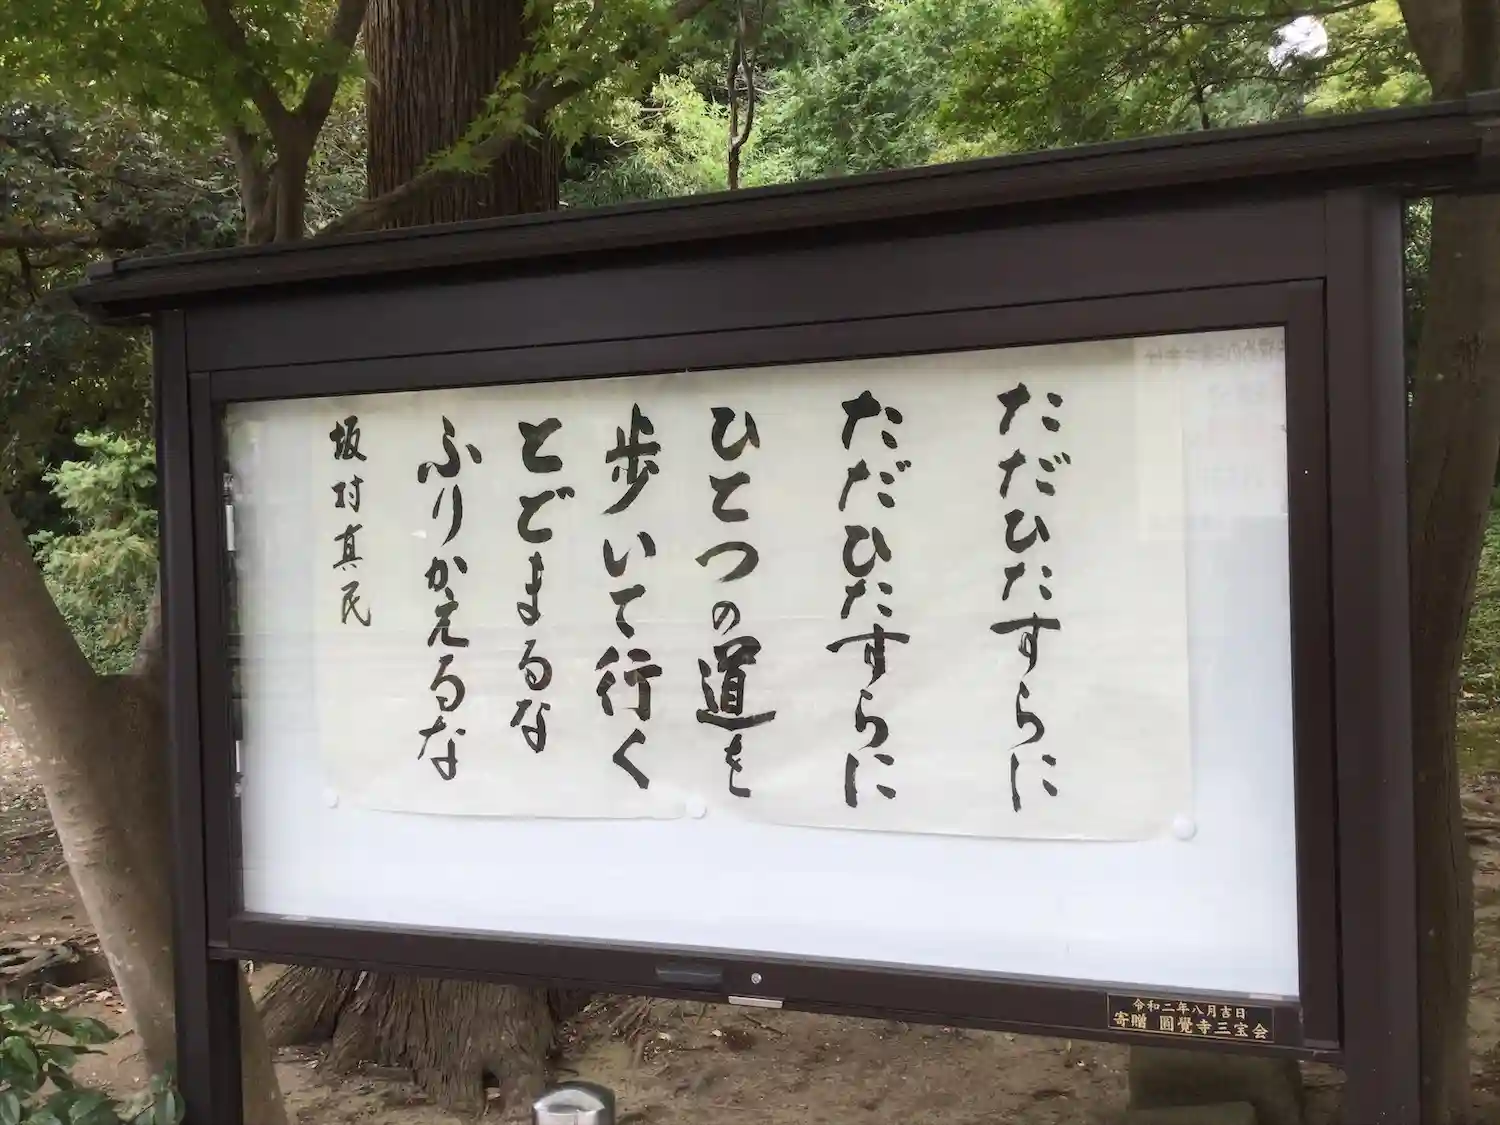 ただひたすらに
ただひたすらに
ひとつの道を
歩いて行く
とどまるな
ふりかえるな
坂村真民
令和二年八月吉日
寄贈 圓覺寺三宝会